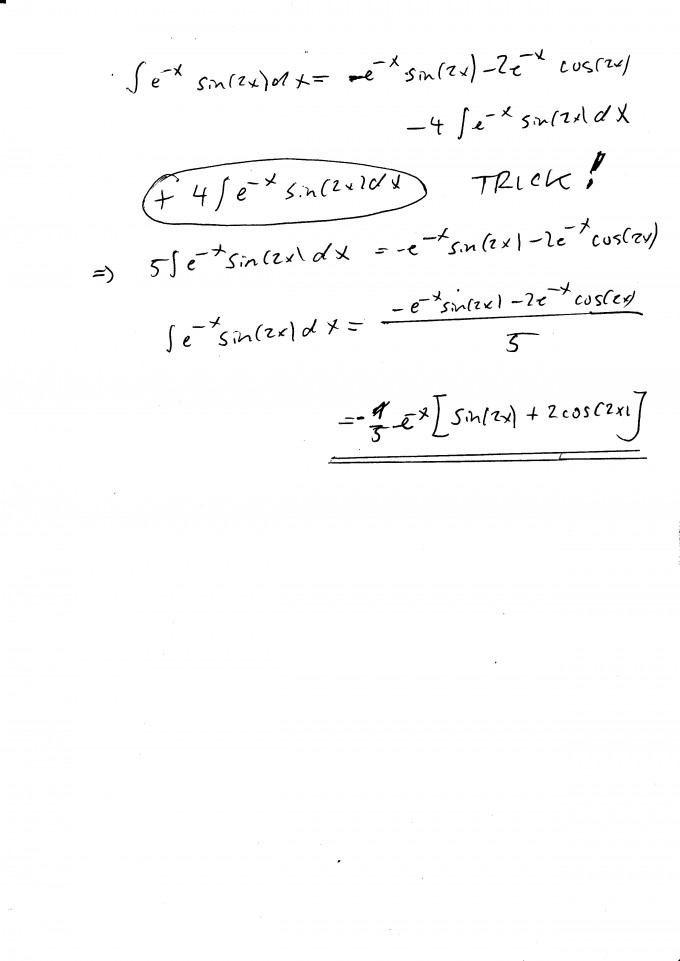 ∫ e^-x sin(2x) dx = -e^-x sin(2x) - 2e^-x cos(2x)
- 4 ∫ e^-x sin(2x) dx
+ 4 ∫ e^-x sin(2x) dx TRICK!
=> 5 ∫ e^-x sin(2x) dx = -e^-x sin(2x) - 2e^-x cos(2x)
∫ e^-x sin(2x) dx = (-e^-x sin(2x) - 2e^-x cos(2x)) / 5
= - 1/5 e^-x [sin(2x) + 2 cos(2x)]